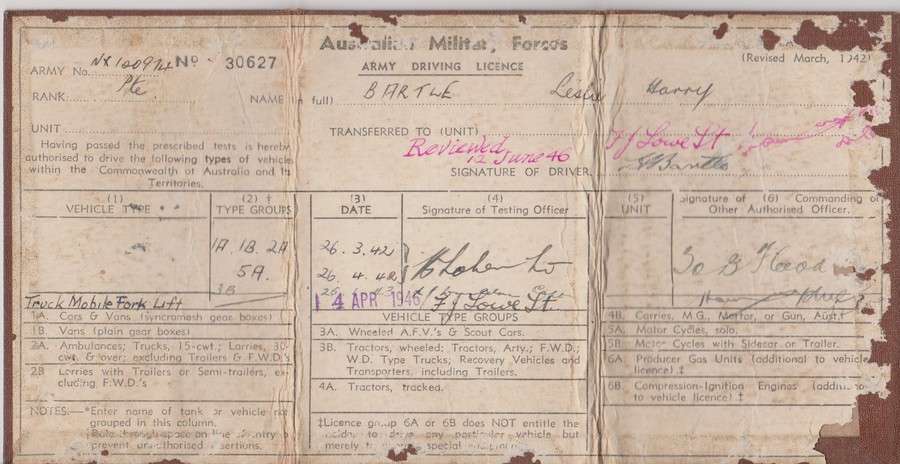 Australian Military Forces
ARMY DRIVING LICENCE
(Revised March, 1942)
ARMY No. NX120974 No 30627
RANK Pte. NAME (in full) BARTLE Leslie Harry
UNIT TRANSFERRED TO (UNIT)
Reviewed 12 June 46 FJ Lowe Lt
Having passed the prescribed tests is hereby
authorised to drive the following types of vehicle
within the Commonwealth of Australia and its
Territories.
SIGNATURE OF DRIVER.
(1) VEHICLE TYPE
(2) † TYPE GROUPS
(3) DATE
(4) Signature of Testing Officer
(5) UNIT
Signature of (6) Commanding or
Other Authorised Officer.
1A. 1B. 2A 26.3.42
5A. 26.4.42
3B
Truck Mobile Fork Lift 14 APR 1946 FJ Lowe Lt.
1A. Cars & Vans (syncromesh gear boxes)
1B. Vans (plain gear boxes)
2A. Ambulances; Trucks, 15-cwt.; Lorries, 30-
cwt. & over; excluding Trailers & F.W.D's
2B Lorries with Trailers or Semi-trailers, ex-
cluding F.W.D.'s
NOTES:—*Enter name of tank or vehicle not
grouped in this column.
†Rule through space on line of entry to
prevent unauthorised insertions.
VEHICLE TYPE GROUPS
3A. Wheeled A.F.V.'s & Scout Cars.
3B. Tractors, wheeled; Tractors, Arty.; F.W.D.;
W.D. Type Trucks; Recovery Vehicles and
Transporters, including Trailers.
4A. Tractors, tracked.
‡Licence group 6A or 6B does NOT entitle the
holder to drive any particular vehicle but
merely
4B. Carries, M.G., Mortar, or Gun, Aust.
5A. Motor Cycles, solo.
5B Motor Cycles with Sidecar or Trailer.
6A. Producer Gas Units (additional to vehicle
licence) ‡
6B. Compression-Ignition Engines (additional
to vehicle licence) ‡